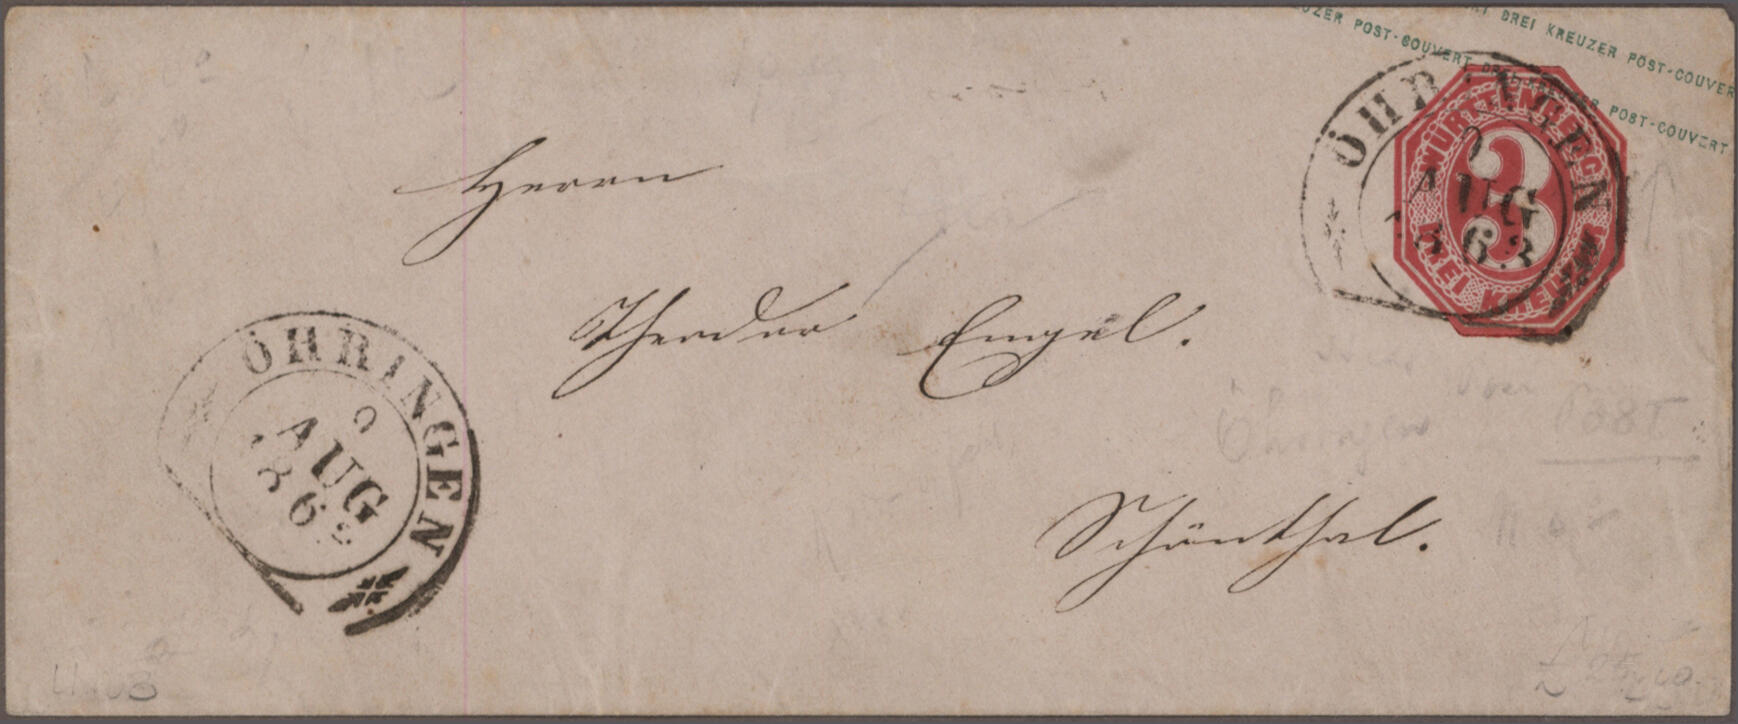 UZER POST-COUVERT DREI KREUZER POST-COUVERT
DREI KREUZER POST-COUVER
ÖHRINGEN
9
AUG
1863
WÜRTTEMBERG
3
DREI KREUZER
Herrn
Theodor Engel.
Schönthal.
ÖHRINGEN
9
AUG
1863
Öhringen
POST